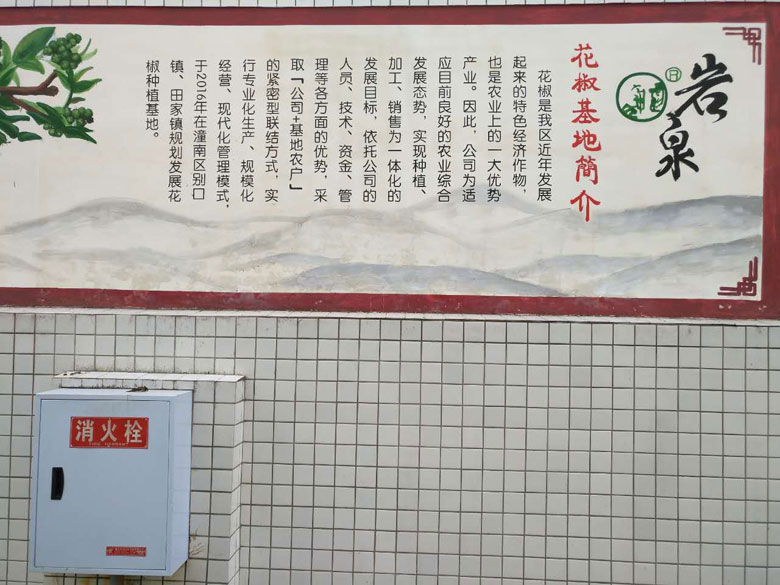 岩泉
花椒基地簡介
花椒是我区近年发展
起来的特色经济作物，
也是农业上的一大优势
产业。因此，公司为适
应目前良好的农业综合
发展态势，实现种植、
加工、销售为一体化的
发展目标，依托公司的
人员、技术、资金、管
理等各方面的优势，采
取「公司+基地农户」
的紧密型联结方式，实
行专业化生产、规模化
经营、现代化管理模式，
于2016年在潼南区别口
镇、田家镇规划发展花
椒种植基地。
消火栓